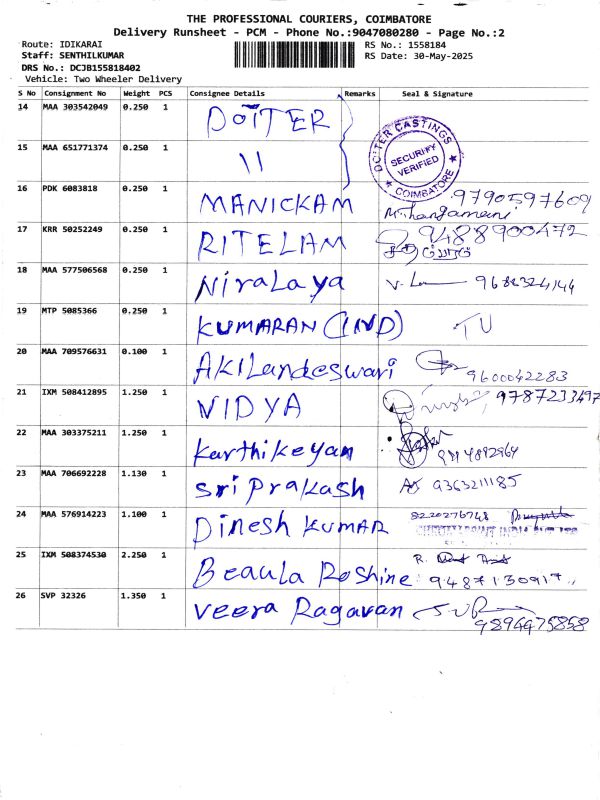 THE PROFESSIONAL COURIERS, COIMBATORE
Delivery Runsheet - PCM - Phone No.:9047080280 - Page No.:2
Route: IDIKARAI
RS No.: 1558184
Staff: SENTHILKUMAR
RS Date: 30-May-2025
DRS No.: DCJB155818402
Vehicle: Two Wheeler Delivery
S No Consignment No Weight PCS Consignee Details Remarks Seal & Signature
14 MAA 303542049 0.250 1 DOITER
DOITER CASTINGS
SECURITY
VERIFIED
COIMBATORE
15 MAA 651771374 0.250 1 11
16 PDK 6083818 0.250 1 MANICKAM 9790597609
17 KRR 50252249 0.250 1 RITELAM 9488900472
18 MAA 577506568 0.250 1 Niralaya
19 MTP 5085366 0.250 1 KUMARAN (IND) TU
20 MAA 709576631 0.100 1 Akilandeswari 9600042283
21 IXM 508412895 1.250 1 VIDYA 9787233497
22 MAA 303375211 1.250 1 Karthikeyan
23 MAA 706692228 1.130 1 Sri Prakash 9363211185
24 MAA 576914223 1.100 1 Dinesh Kumar 8220276748
25 IXM 508374530 2.250 1 Beaula Roshine R.
26 SVP 32326 1.350 1 Veera Ragavan
9894475858